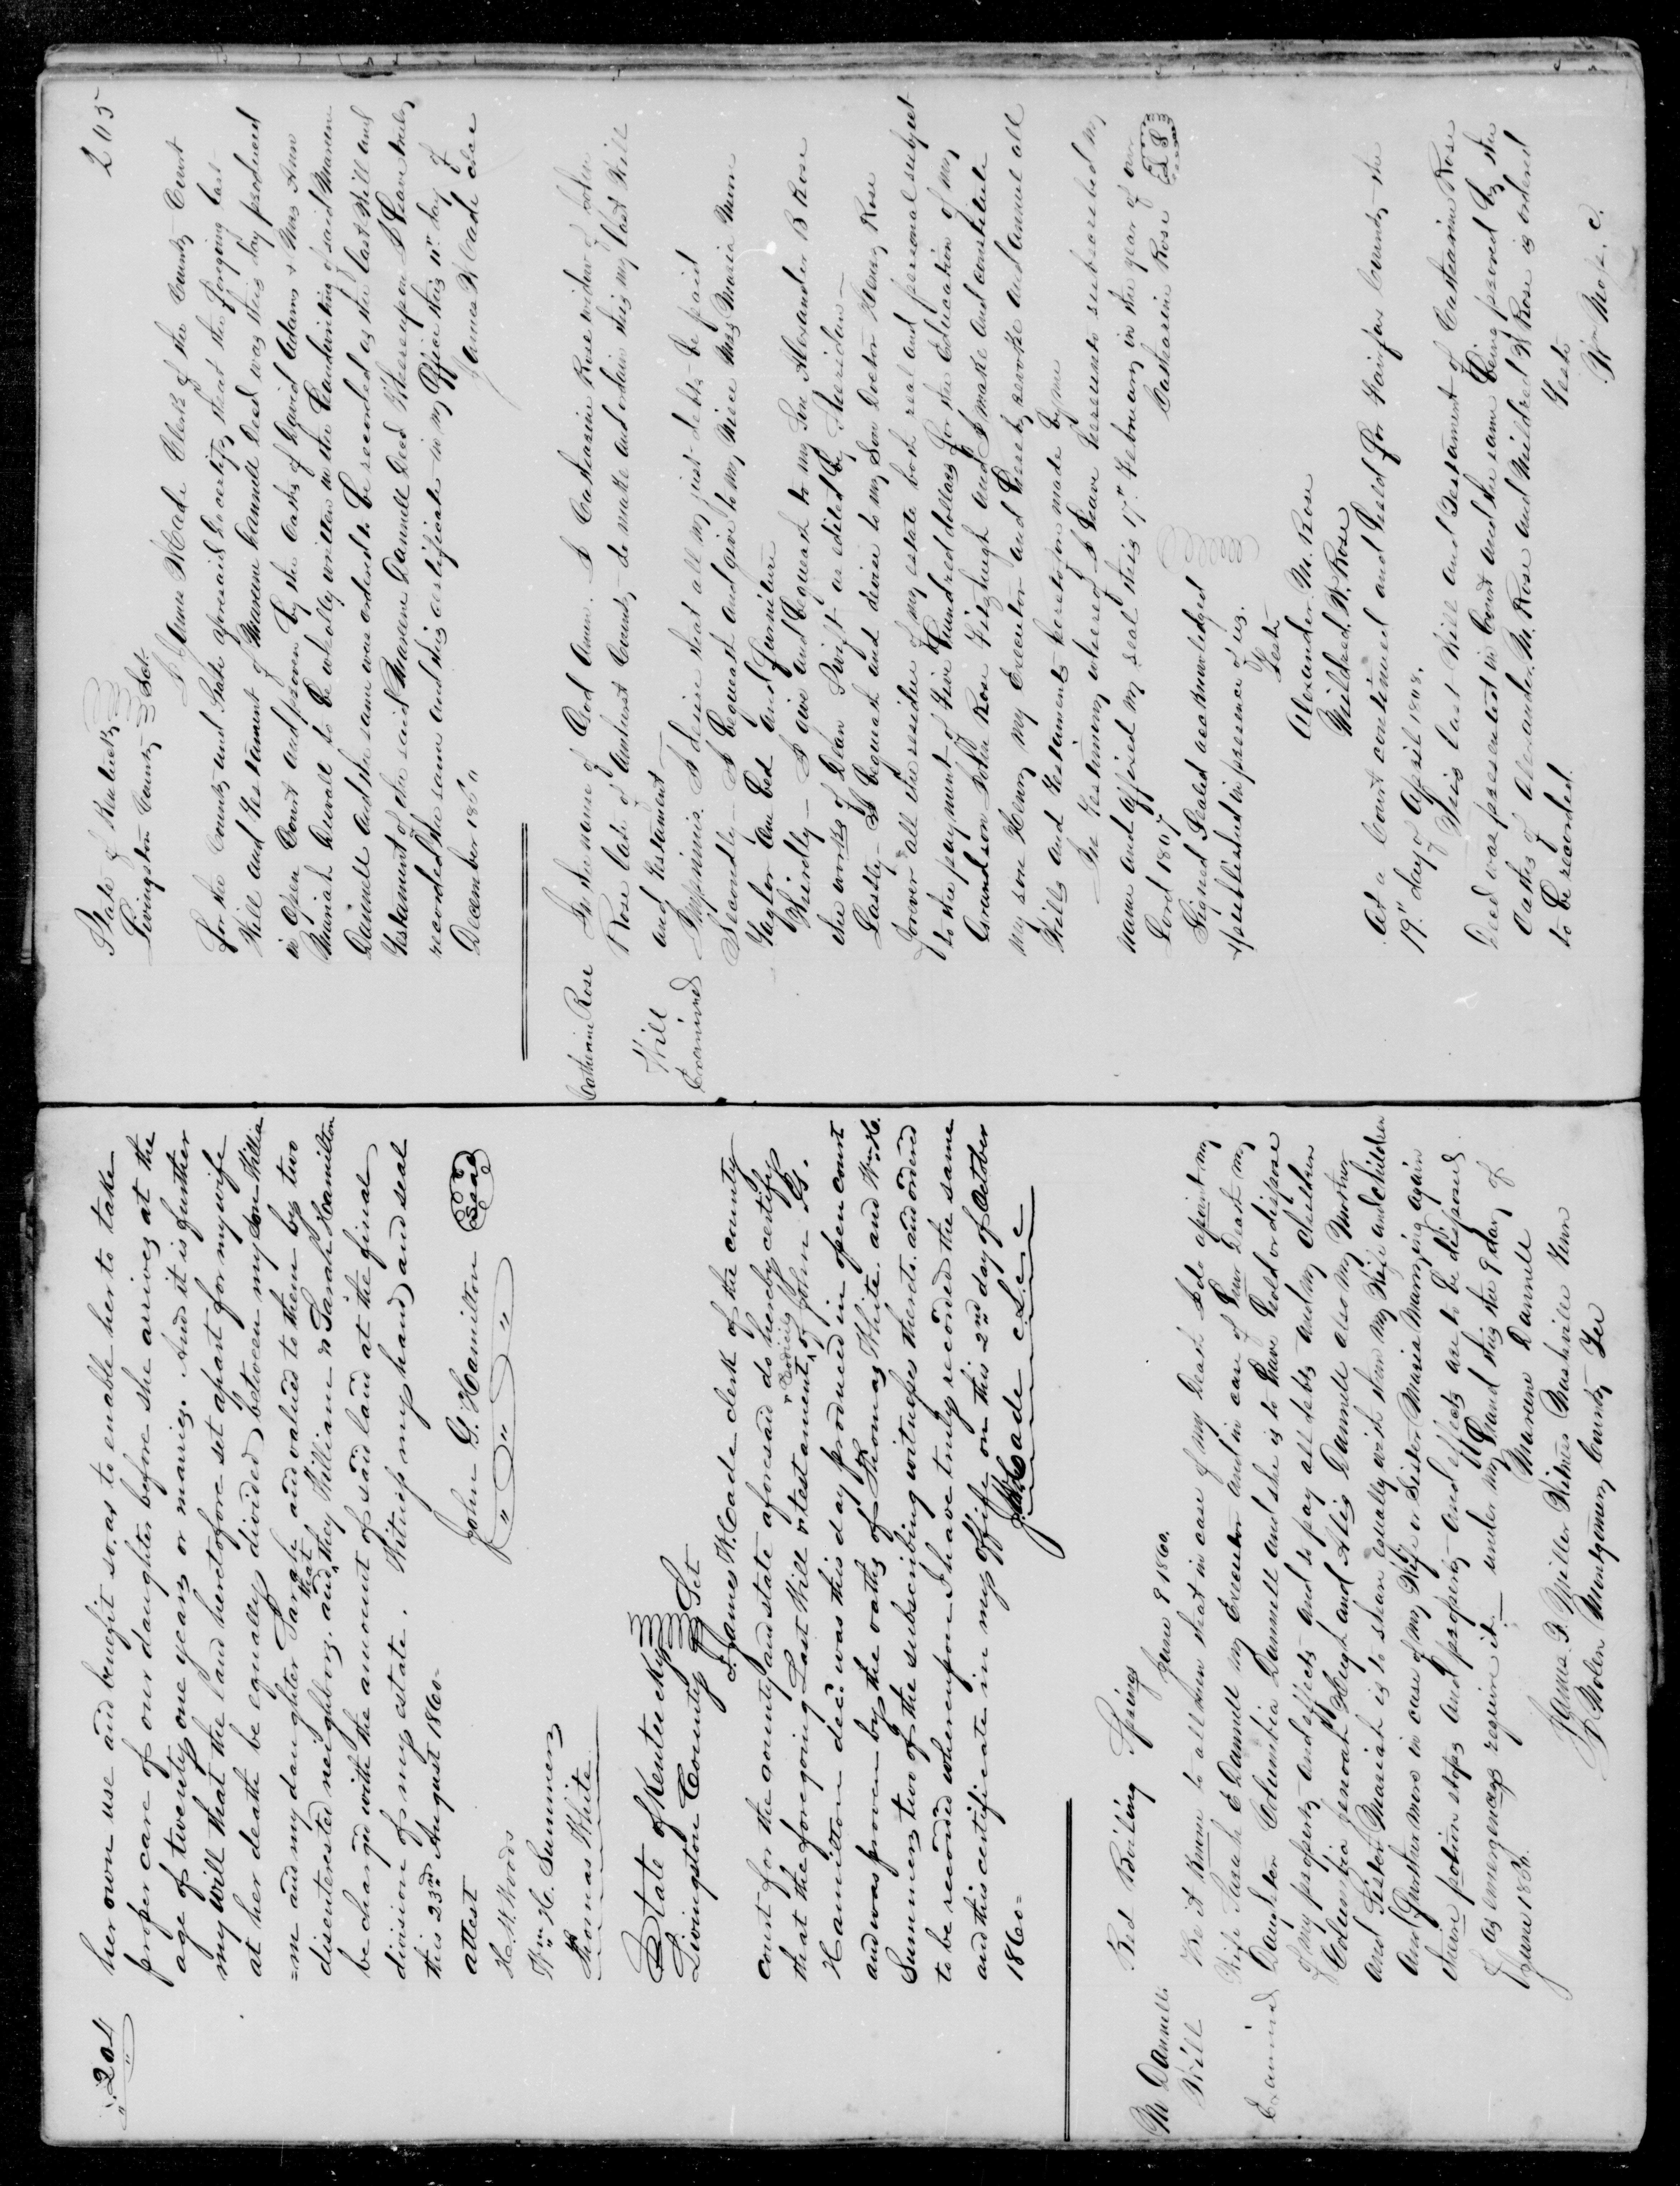 204
her own use and benefit so. as to enable her to take
proper care of our daughter before she arrives at the
age of twenty one years or marries. And it is further
my will that the land heretofore set apart for my wife
at her death be equally divided between my son Willia
=m and my daughter Sarah and valued to them by two
disinterested neighbors. and that they William & Sarah Hamilton
be charged with the amount of said land at the final
division of my estate. Witness my hand and seal
this 23rd August 1860-
John G. Hamilton Seal
attest
H. W. Woods
Wm H. Summers
Thomas White
State of Kentucky
Livingston County Sct
I James W. Cade clerk of the county
court for the county and state aforesaid do hereby certify
that the foregoing Last Will & testament & Codicil of John G.
Hamilton decd. was this day produced in open court
and was proven by the oaths of Thomas White. and Wm H.
Summers two of the subscribing witnesses thereto. and ordered
to be recorded whereupon I have truly recorded the same
and this certificate in my office on this 2nd day of October
1860=
J. W. Cade c.L.c.c
M Dannells
Will
Examined
Red Boiling Springs
June 9 1860.
Be it Known to all men that in case of my Death I do apoint my
Wife Sarah E Dannell my Executor and in case of hur Death my
Daughter Columbia Dannell and she is to have hold or dispose
of my property and effects and to pay all debts and my children
Columbia Senorah Hugh and Alis Dannell also my Mother
and Sister Mariah is to share equally with them my Wife and children
and furthermore in case of my Wife or Sister Maria Marrying again
their potion stops and property and effects are to be disposed
of as emergences require it — under my hand this the 9 day of
June 1860.
Marene Dannell
James D. Miller Witness Nashville Tenn
Bolen Montgomery County Ter
205
State of Kentucky
Livingston County Sct.
I James W Cade Clerk of the County Court
for the County and State aforesaid do certify that the forgoing last
Will and Testament of Marene Dannell Decd was this day produced
in open Court and proven by the oaths of David Adams & Mrs Ann
Mariah Duvall to be wholly written in the handwriting of said Marene
Dannell and the same was ordered to be recorded as the last Will and
Testament of the said Marene Dannell Decd Whereupon I have truly
recorded the same and this certificate in my office this 11" day of
December 186
James W Cade clce
Catherine Rose
Will
Examined
In the name of God Amen. I Catharine Rose widow of John
Rose late of Amherst County do make and ordain this my last Will
and Testament
Imprimis. I desire that all my just debts be paid
Secondly— I bequeath and give to my Niece Mrs Maria Mun
Taylor one bed and furniture
Thirdly— I give and bequeath to my Son Alexander B Rose
the works of Dean Swift as edited by Sheriden—
Lastly— I bequeath and devise to my Son Doctor Henry Rose
forever all the residue of my estate both real and personal subject
to the payment of five hundred dollars for the Education of my
Grandson John Rose Fitzhugh and I make and constitute
my son Henry my Executor and hereby revoke and annul all
Wills and Testaments heretofore made by me
In Testimony whereof I have hereunto subscribed my
name and affixed my seal this 17" February in the year of our
Lord 1807
Catharine Rose LS
Signed Sealed acknowledged
& published in presence of us.
Teste
Alexander M. Rose
Mildred. W. Rose
At a Court continued and held for Fairfax County the
19" day of April 1808.
This last Will and Testament of Catharine Rose
Decd was presented in Court and the same being proved by the
oaths of Alexander M. Rose and Mildred W Rose is ordered
to be recorded.
Teste
Wm Moss. C.